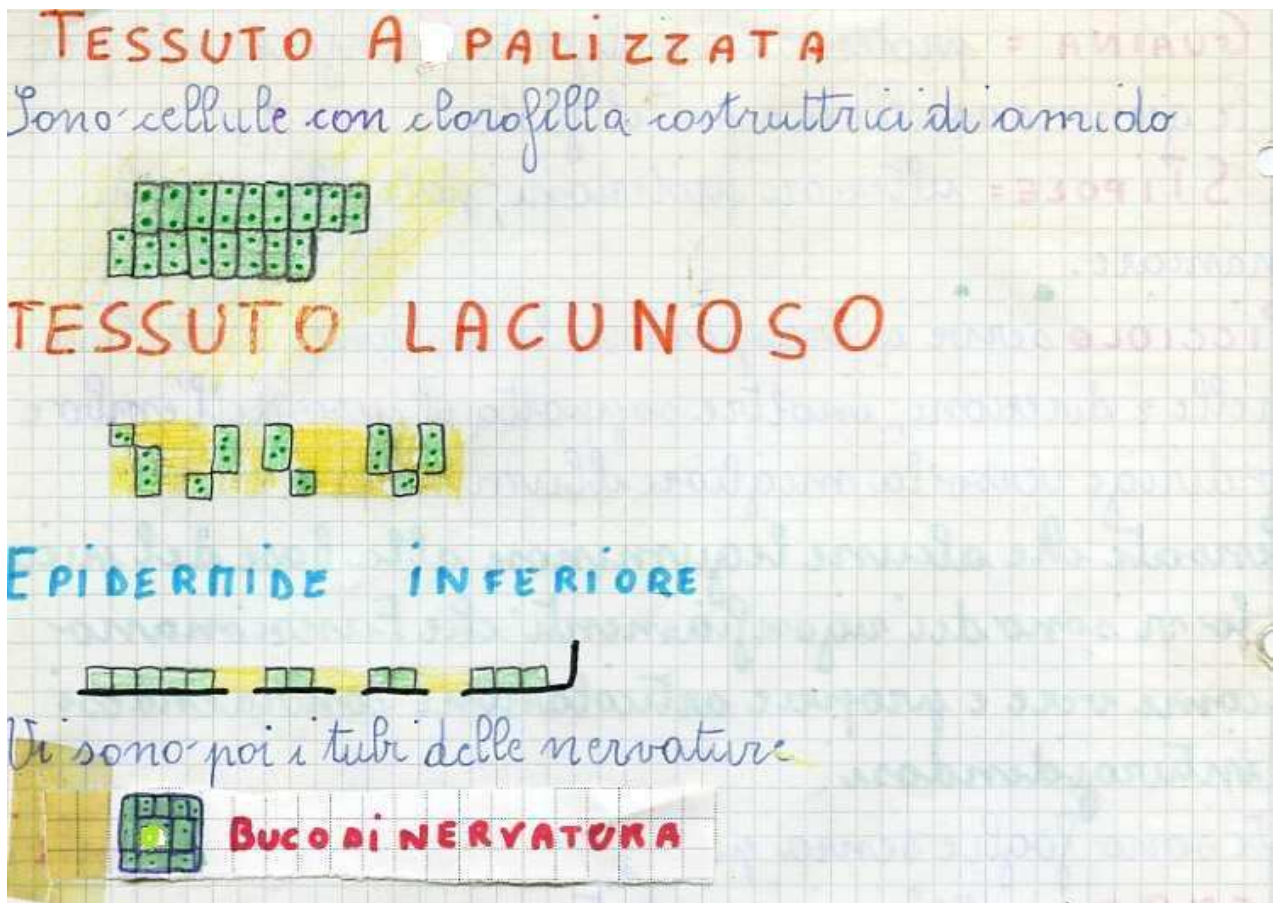 TESSUTO A PALIZZATA
Sono cellule con clorofilla costruttrici di amido
TESSUTO LACUNOSO
EPIDERMIDE INFERIORE
Vi sono poi i tubi delle nervature
BUCO DI NERVATURA